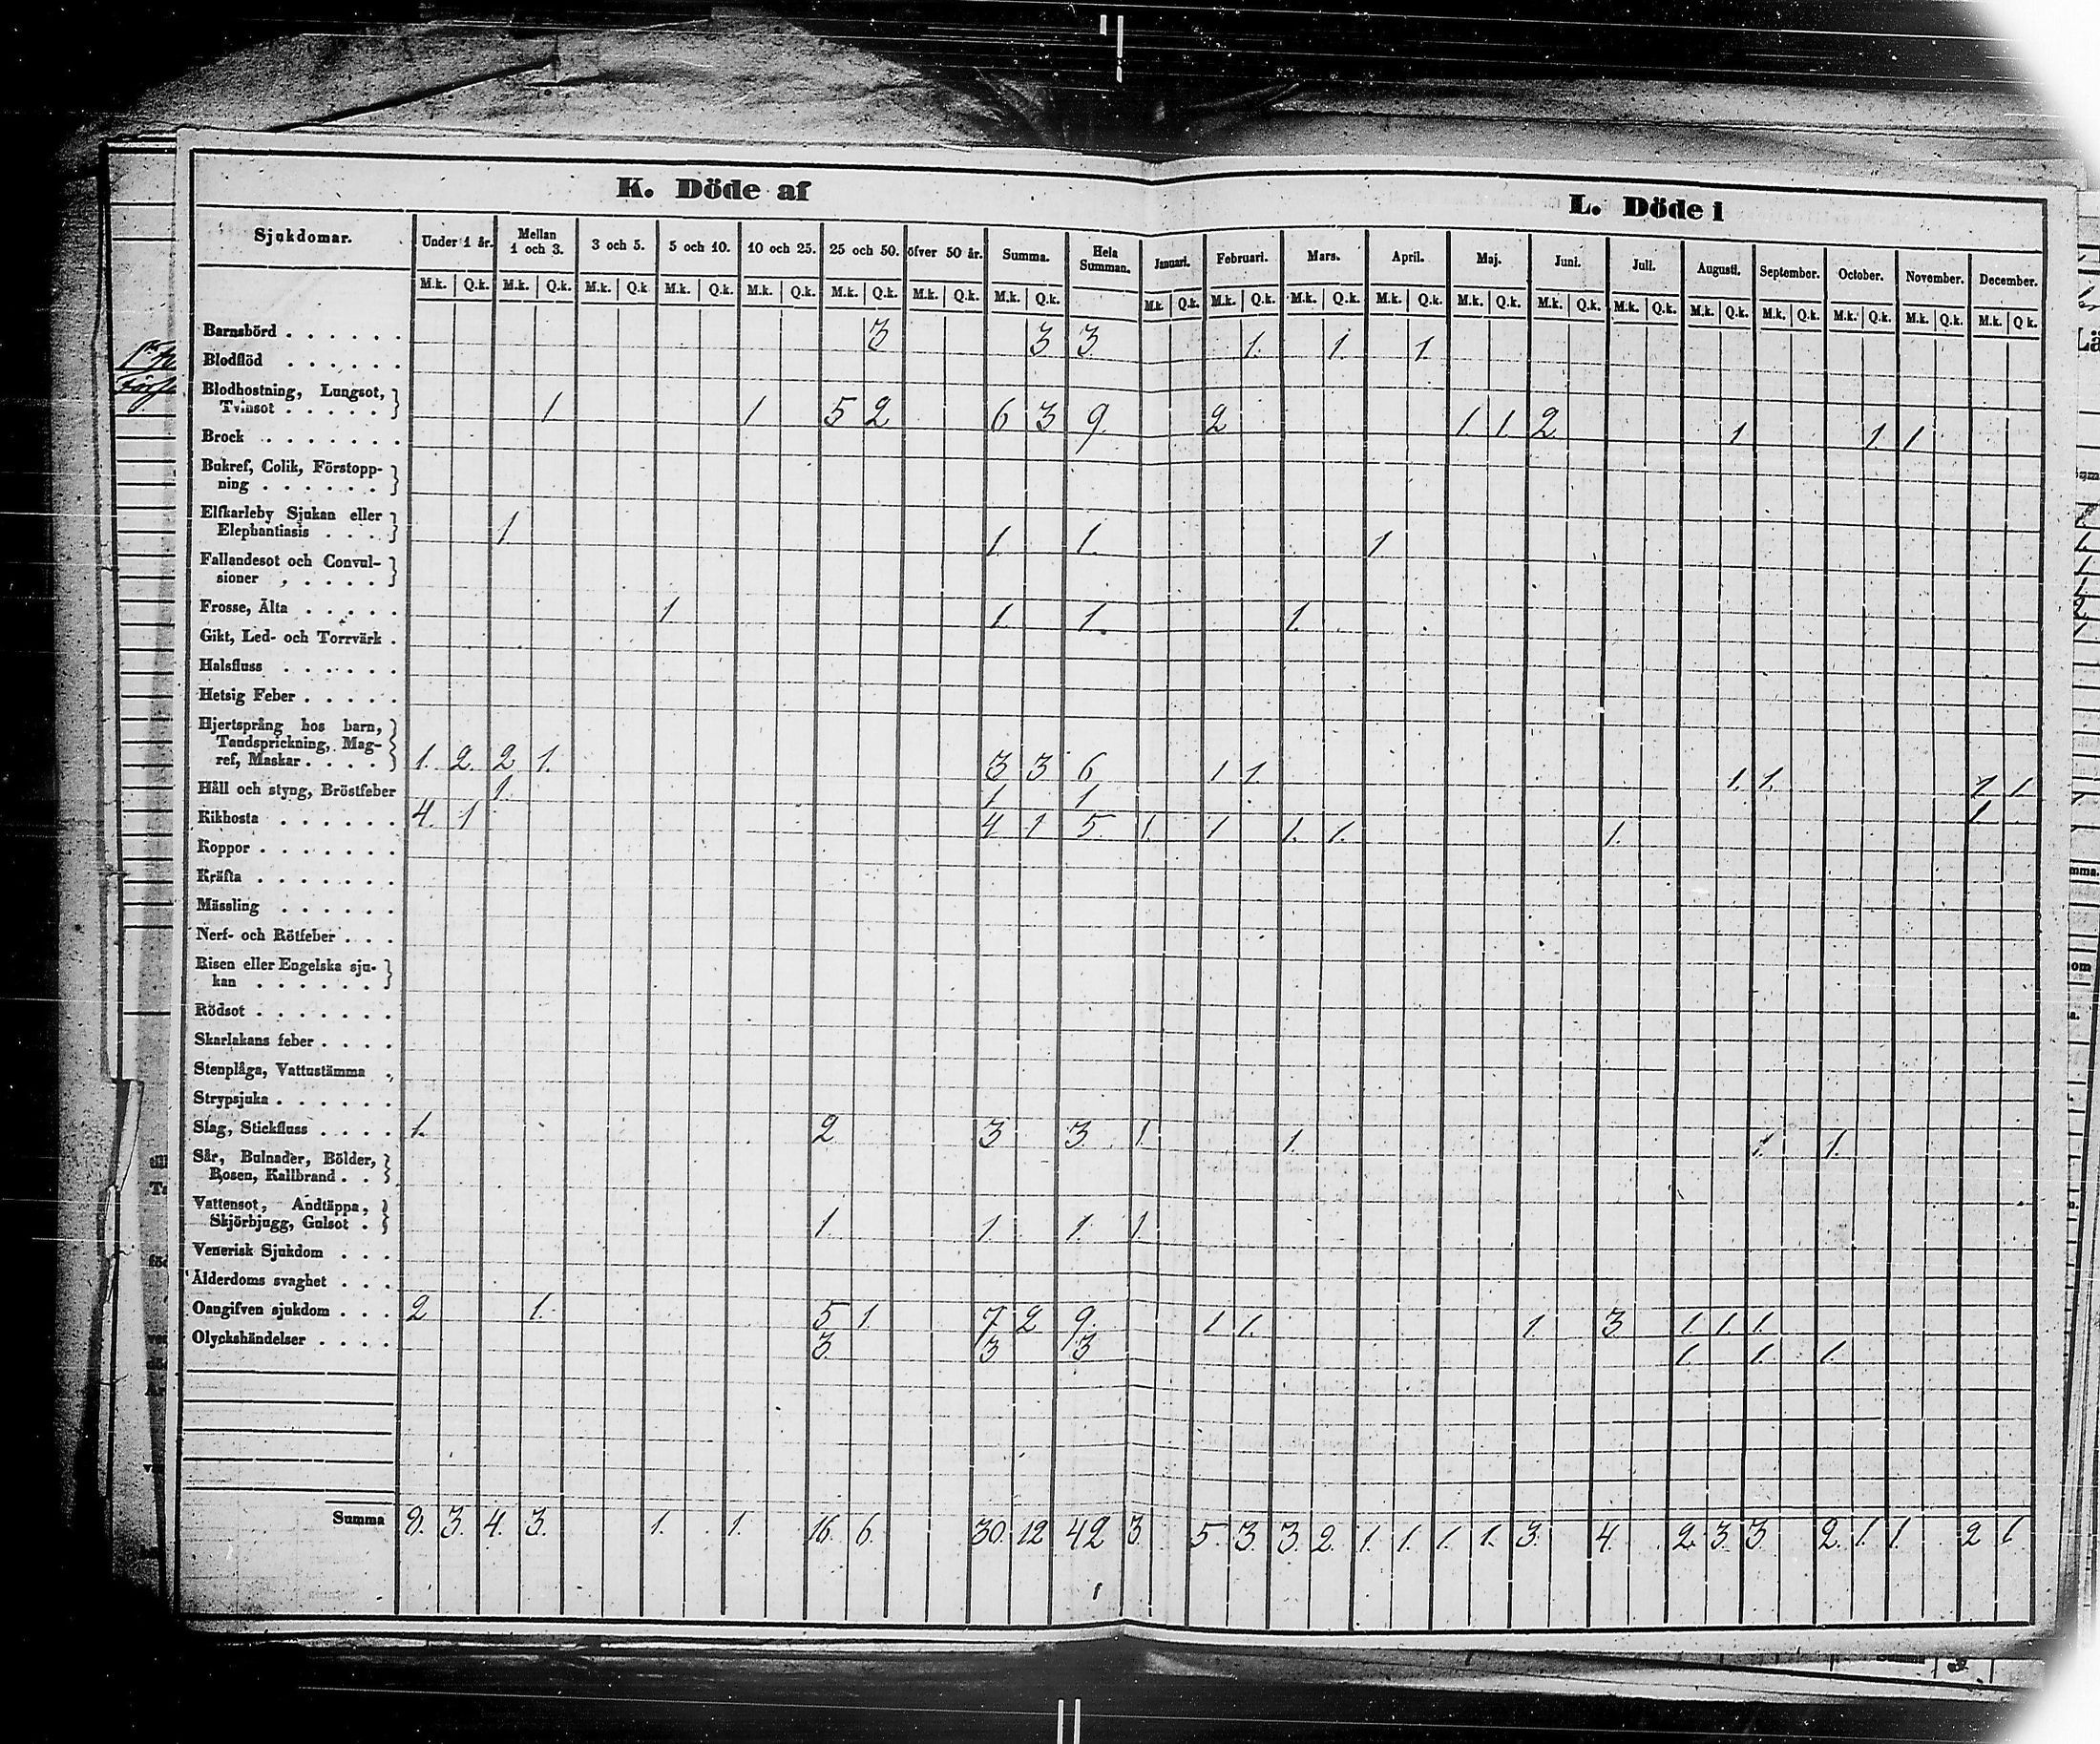 K. Döde af
L. Döde i
Sjukdomar. Under 1 år. Mellan 1 och 3. 3 och 5. 5 och 10. 10 och 25. 25 och 50. öfver 50 år. Summa. Hela Summan. Januari. Februari. Mars. April. Maj. Juni. Juli. Augusti. September. October. November. December.
M.k. Q.k. M.k. Q.k. M.k. Q.k M.k. Q.k. M.k. Q.k. M.k. Q.k. M.k. Q.k. M.k. Q.k. M.k. Q.k. M.k. Q.k. M.k. Q.k. M.k. Q.k. M.k. Q.k. M.k. Q.k. M.k. Q.k. M.k. Q.k. M.k. Q.k. M.k. Q.k. M.k. Q.k. M.k. Q k.
Barnsbörd . . . . . . 3 3 3 1. 1. 1
Blodflöd . . . . . .
Blodhostning, Lungsot,
Tvinsot . . . . . 1 1 5 2 6 3 9. 2 1. 1. 2 1 1 1
Brock . . . . . . .
Bukref, Colik, Förstopp-
ning . . . . . .
Elfkarleby Sjukan eller
Elephantiasis . . . . 1. 1. 1. 1
Fallandesot och Convul-
sioner , . . . . .
Frosse, Älta . . . . . 1 1. 1. 1.
Gikt, Led- och Torrvärk .
Halsfluss . . . . . .
Hetsig Feber . . . . .
Hjertsprång hos barn,
Tandsprickning, Mag-
ref, Maskar . . . . 1. 2. 2 1. 3 3 6 1 1 1. 1. 1 1
Håll och styng, Bröstfeber 1 1 1 1.
Kikhosta . . . . . . 4. 1 4 1 5 1. 1 1. 1. 1.
Koppor . . . . . . .
Kräfta . . . . . . .
Mässling . . . . . .
Nerf- och Rötfeber . . .
Risen eller Engelska sju-
kan . . . . . .
Rödsot . . . . . . .
Skarlakans feber . . . .
Stenplåga, Vattustämma .
Strypsjuka . . . . . .
Slag, Stickfluss . . . . 1. 2 3 3. 1 1. 1. 1.
Sår, Bulnader, Bölder,
Rosen, Kallbrand . .
Vattensot, Andtäppa,
Skjörbjugg, Gulsot . 1. 1 1. 1.
Venerisk Sjukdom . . .
Ålderdoms svaghet . . .
Oangifven sjukdom . . . 2 1. 5 1 7 2 9. 1 1. 1. 3 1. 1. 1.
Olyckshändelser . . . . 3. 3 3 1. 1. 1.
Summa 8. 3. 4. 3. 1. 1. 16 6. 30. 12 42 3. 5. 3. 3. 2. 1. 1. 1. 1. 3. 4. 2. 3. 3. 2. 1. 1. 2 1.